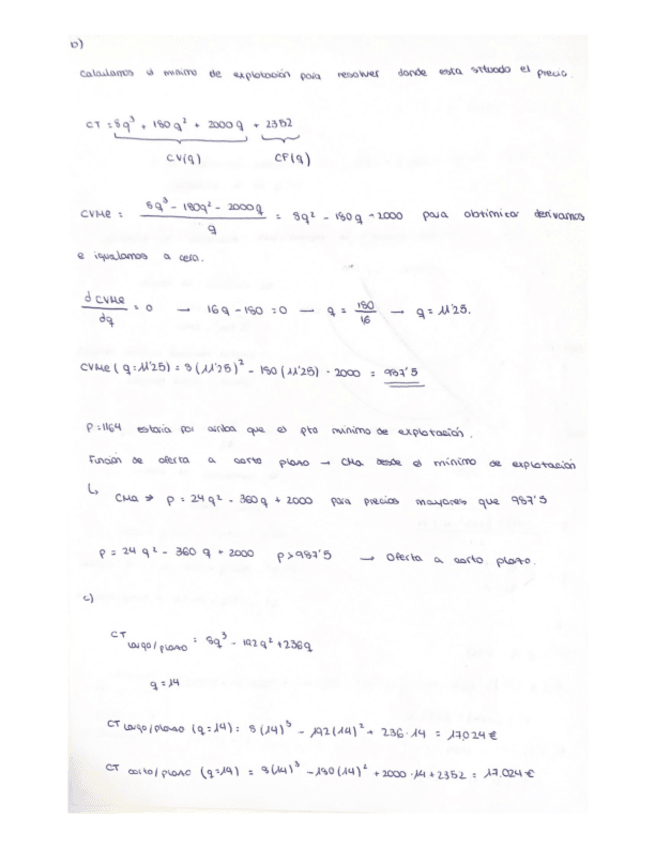 b)
Calculamos el mínimo de explotación para resolver donde esta situado el precio.
CT = 8q³ - 180q² + 2000q + 2352
CV(q) CF(q)
CVMe = 8q³ - 180q² - 2000q / q = 8q² - 180q + 2000 para obtimizar derivamos
e igualamos a cero.
d CVMe / dq = 0 → 16q - 180 = 0 → q = 180/16 → q = 11'25.
CVMe (q = 11'25) = 8(11'25)² - 180(11'25) + 2000 = 987'5
P = 1164 estaría por arriba que el pto mínimo de explotación.
Función de oferta a corto plazo → CMa desde el mínimo de explotación
↳ CMa ⇒ p = 24q² - 360q + 2000 para precios mayores que 987'5
p = 24q² - 360q + 2000 p > 987'5 → Oferta a corto plazo.
c)
CT largo/plazo = 8q³ - 192q² + 2369
q = 14
CT largo/plazo (q = 14) = 8(14)³ - 192(14)² + 236·14 = 17024€
CT corto/plazo (q = 14) = 8(14)³ - 180(14)² + 2000·14 + 2352 = 17.024€